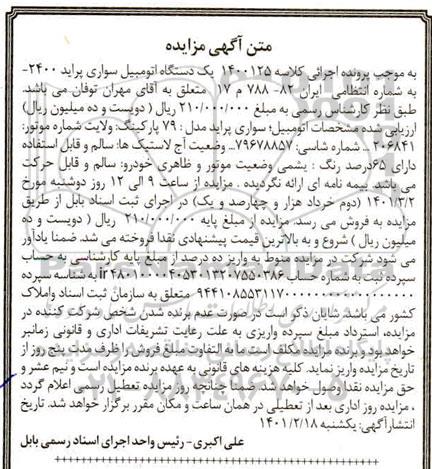 متن آگهی مزایده
به موجب پرونده اجرائی کلاسه ۱۴۰۰۱۲۵ یک دستگاه اتومبیل سواری پراید ۲۴۰۰-
به شماره انتظامی ایران ۸۲- ۷۸۸ م ۱۷ متعلق به آقای مهران توفان می باشد.
طبق نظر کارشناس رسمی به مبلغ ۲۱۰/۰۰۰/۰۰۰ ریال ( دویست و ده میلیون ریال)
ارزیابی شده و مشخصات اتومبیل؛ سواری پراید مدل : ۷۹ پارکینگ: ولایت شماره موتور:
۲۰۶۸۴۱ _ شماره شاسی: ۷۹۶۷۸۸۵۷_ وضعیت آج لاستیک ها: سالم و قابل استفاده
دارای ۶۵درصد رنگ : یشمی وضعیت موتور و ظاهری خودرو: سالم و قابل حرکت
می باشد. بیمه نامه ای ارائه نگردیده . مزایده از ساعت ۹ الی ۱۲ روز دوشنبه مورخ
۱۴۰۱/۳/۲ (دوم خرداد هزار و چهارصد و یک) در اجرای ثبت اسناد بابل از طریق
مزایده به فروش می رسد. مزایده از مبلغ پایه ۲۱۰/۰۰۰/۰۰۰ ریال ( دویست و ده
میلیون ریال ) شروع و به بالاترین قیمت پیشنهادی نقدا فروخته می شد. ضمنا یادآور
می شود شرکت در مزایده منوط به واریز ده درصد از مبلغ پایه کارشناسی به حساب
سپرده ثبت به شماره حساب به شناسه سپرده
متعلق به سازمان ثبت اسناد واملاک
کشور می باشد. شایان ذکر است در صورت عدم برنده شدن شخص شرکت کننده در
مزایده، استرداد مبلغ سپرده واریزی به علت رعایت تشریفات اداری و قانونی زمانبر
خواهد بود و برنده مزایده مکلف است مابه التفاوت مبلغ فروش را ظرف مدت پنج روز از
تاریخ مزایده واریز نماید. کلیه هزینه های قانونی به عهده برنده مزایده است و نیم عشر و
حق مزایده نقدا وصول خواهد شد. ضمنا چنانچه روز مزایده تعطیل رسمی اعلام گردد
، مزایده روز اداری بعد از تعطیلی در همان ساعت و مکان مقرر برگزار خواهد شد. تاریخ
انتشارآگهی: یکشنبه ۱۴۰۱/۲/۱۸
علی اکبری - رئیس واحد اجرای اسناد رسمی بابل